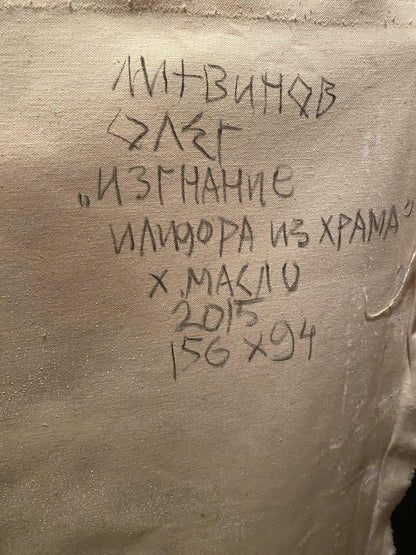 ЛИТВИНОВ
ОЛЕГ
„ИЗГНАНИЕ
ИЛИОДОРА ИЗ ХРАМА"
Х.МАСЛО
2015
156 х 94